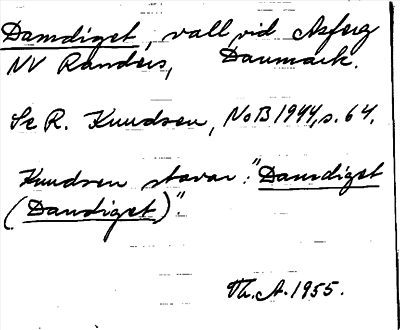 Damdiget, vall vid Asferg
NV Randers, Danmark.
Se R. Knudsen, NoB 1944, s. 64.
Knudsen stavar: "Damdiget
(Damdiget)".
Th. A. 1955.